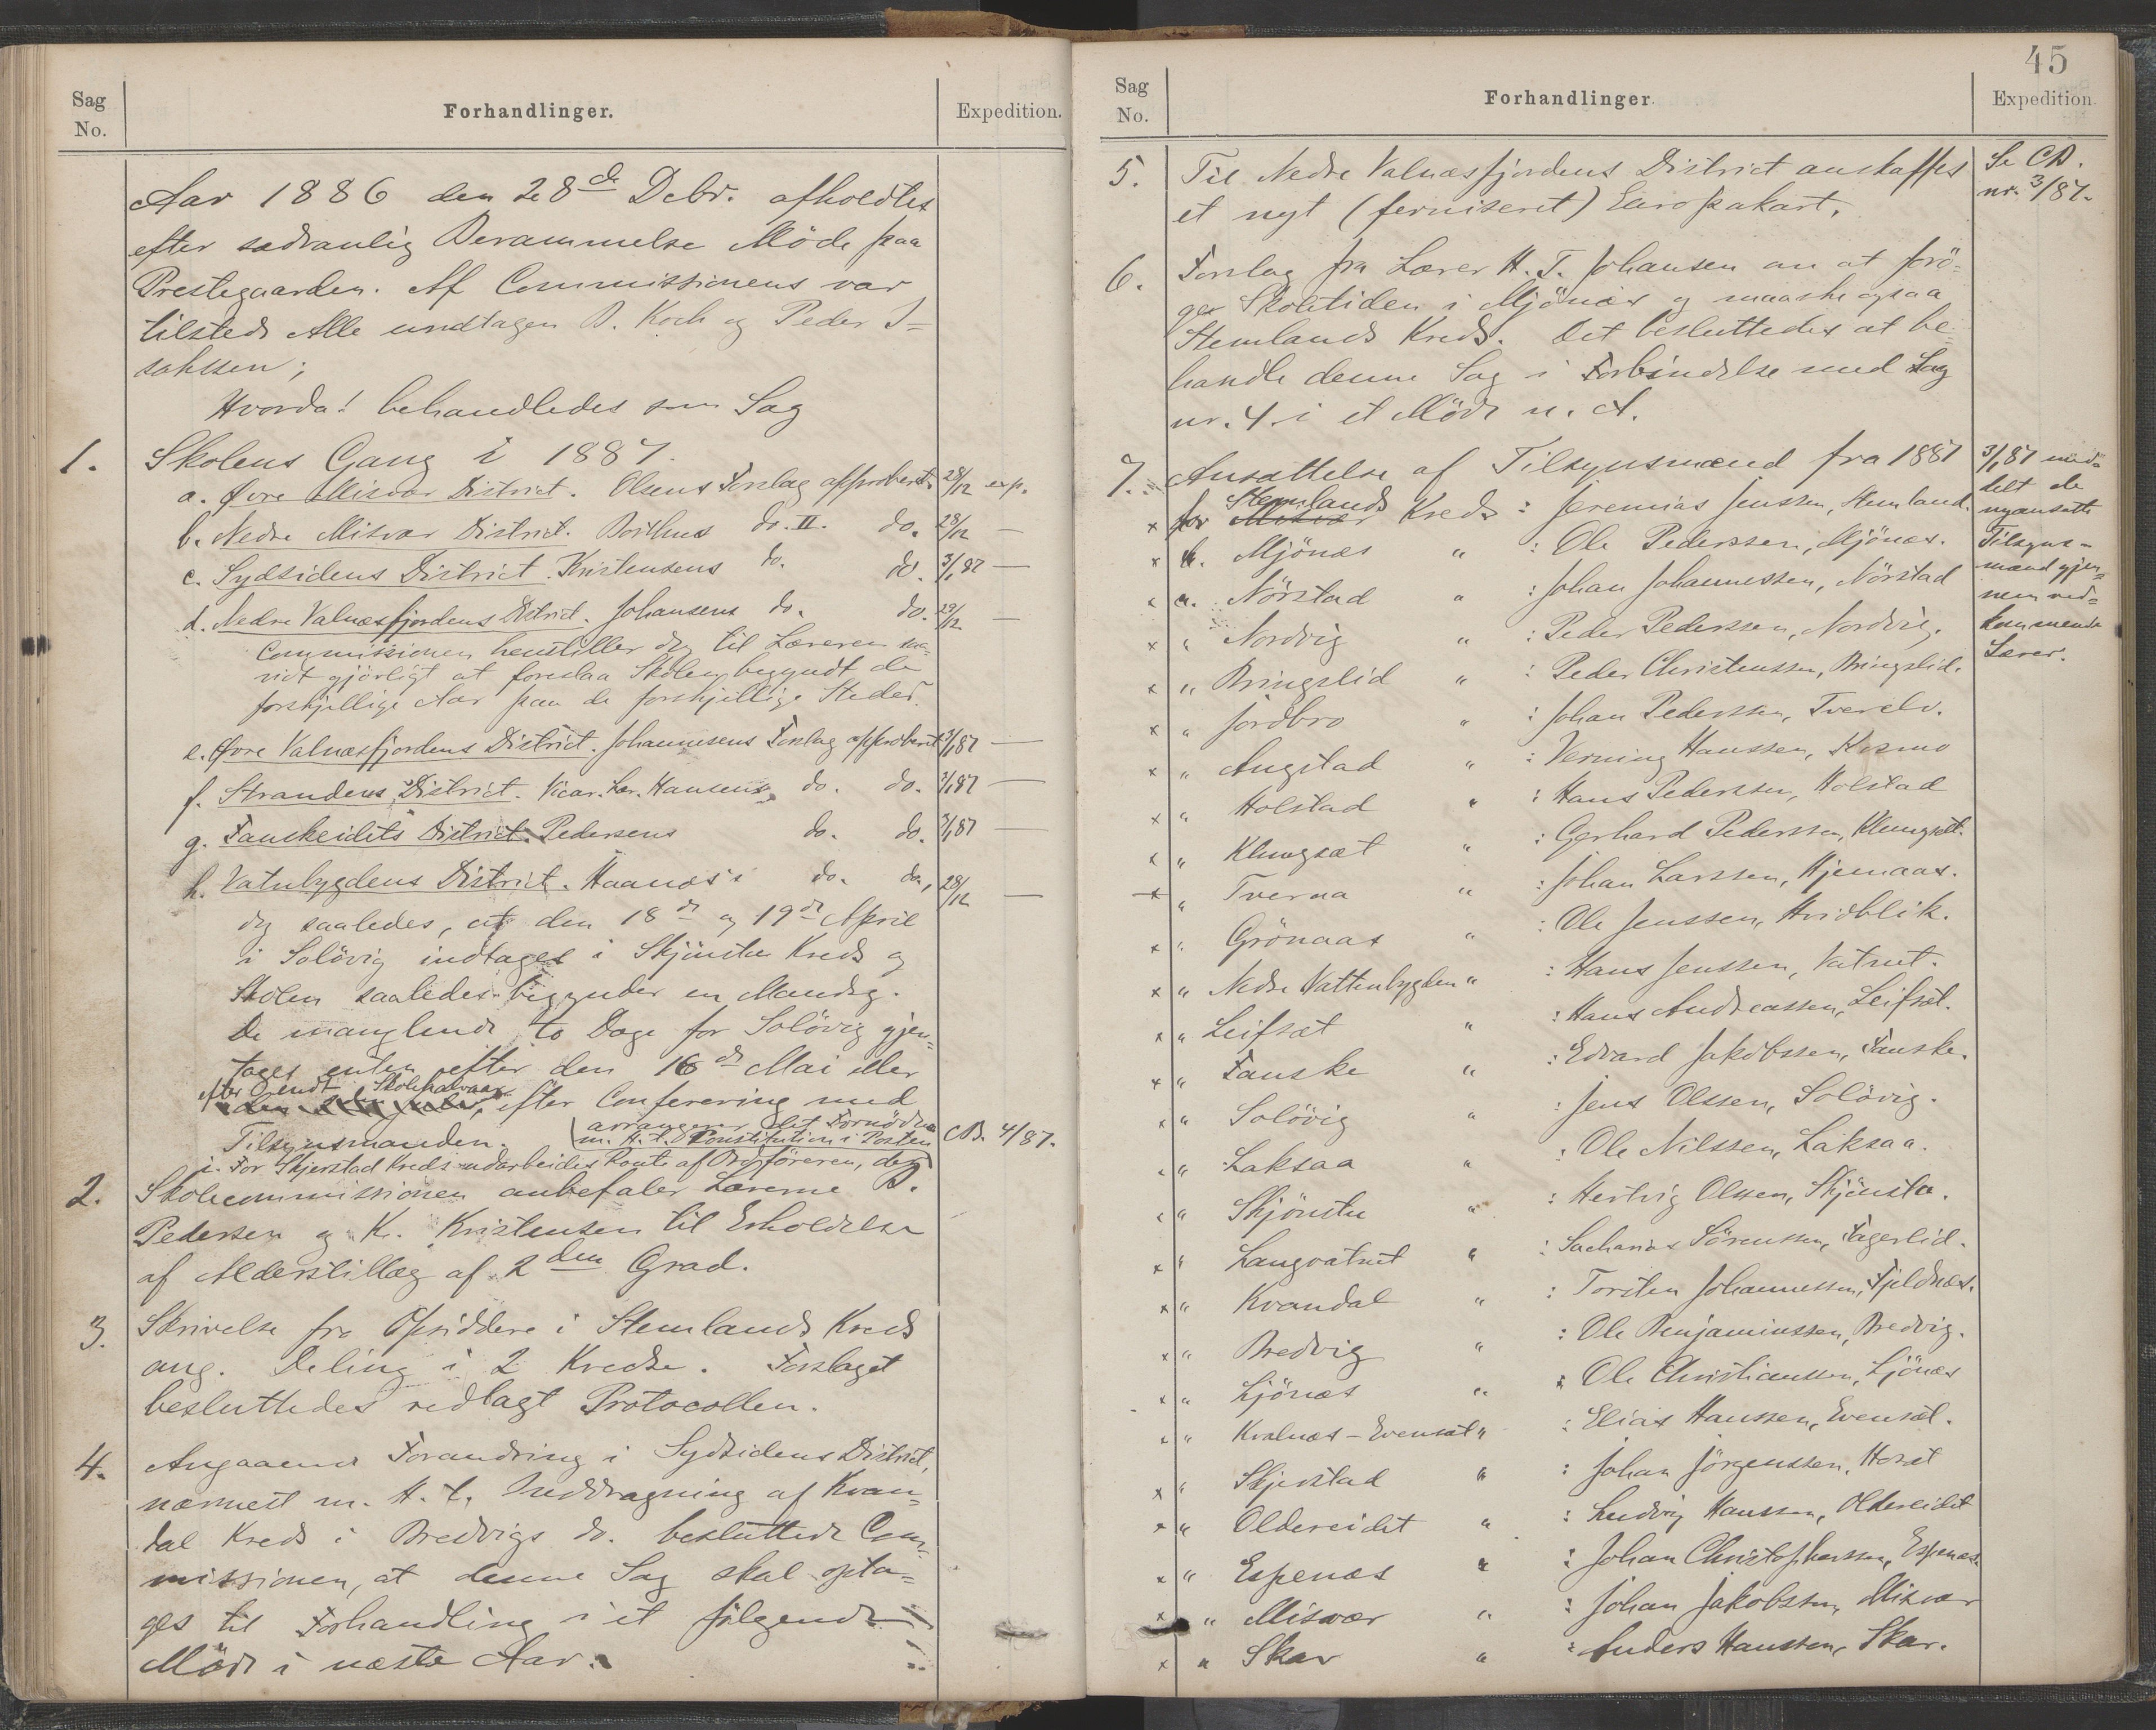 Sag No.
Forhandlinger.
Expedition.
Aar 1886 den 28de Debr. afholdtes
efter sædvanlig Berammelse Möde paa
Prestegaarden. Af Commissionens var
tilstede Alle undtagen B. Koch og Peder I=
sakssen;
Hvorda! behandledes som Sag
1. Skolens Gang i 1887.
a. Øvre Misvær District. Olsens Forslag approberet. 28/12 exp.
b. Nedre Misvær District. do. II. do. 28/12 —
c. Sydsidens District. Kristensens do. do. 3/1 87 —
d. Nedre Valnæsfjordens District. Johansens do. do. 28/12 —
Commissionen henstiller dog til Læreren saa=
vidt gjörligt at foreslaa Skolen begyndt de
forskjellige Aar paa de forskjellige Steder.
e. Øvre Valnæsfjordens District. Johannesens Forslag approberet 3/1 87 —
f. Strandens District. Vicar. Lær. Hansens do. do. 3/1 87 —
g. Fauskeidets District. Pedersens do. do. 3/1 87 —
h. Vatnbygdens District. Haanæs's do. do., 28/12 —
dog saaledes, at den 18de og 19de April
i Solövig indtages i Skjönstu Kreds og
Skolen saaledes begynder en Mandag.
De manglende to Dage for Solövig gjen=
tages enten efter den 16de Mai eller
efter endt Skolehalvaar
efter Conferering med
Tilsynsmanden.
arrangerer det Fornödne
m. H. t. Constitution i Posten CB. 4/87.
i. For Skjerstad Kreds udarbeides Route af Ordföreren, der
2. Skolecommissionen anbefaler Lærerne B.
Pedersen og K. Kristensen til Erholdelse
af Alderstillæg af 2den Grad.
3. Skrivelse fra Opsiddere i Stemlands Kreds
ang. Deling i 2 Kredse. Forslaget
besluttedes vedlagt Protocollen.
4. Angaaende Forandring i Sydsidens District,
nærmest m. H. t. Inddragning af Kvan=
dal Kreds i Bredvigs do. besluttede Com=
missionen, at denne Sag skal opta=
ges til Forhandling i et fölgende
Möde i næste Aar.
45
Sag No.
Forhandlinger.
Expedition.
5. Til Nedre Valnæsfjordens District anskaffes Se CB.
et nyt (ferniseret) Europakart. nr. 3/87.
6. Forslag fra Lærer H. T. Johansen om at forö=
ges Skoletiden i Mjönæs og maaske ogsaa
Stemlands Kreds. Det besluttedes at be=
handle denne Sag i Forbindelse med Sag
nr. 4 i et Möde n. A.
7. Ansættelse af Tilsynsmænd fra 1887
3/1 87 med=
delt de
nyansatte
Tilsyns=
mænd gjen=
nem ved=
kommende
Lærer.
x for Stemlands Kreds : Jeremias Jenssen, Stemland.
x Mjönæs " : Ole Pederssen, Mjönæs.
Nörstad " : Johan Johannessen, Nörstad
x " Nordvig " : Peder Pederssen, Nordvig.
x " Bringslid " : Peder Christenssen, Bringslid.
x " Jordbro " : Johan Pederssen, Tverelv.
x " Augstad " : Verning Hanssen, Kosmo
x " Holstad " : Hans Pederssen, Holstad
x " Klungsæt " : Gerhard Pederssen, Klungsæt.
x " Tveraa " : Johan Larssen, Hjemaas.
x " Grönaas " : Ole Jenssen, Hvidblik.
x " Nedre Vattenbygden " : Hans Jenssen, Vatnet.
x " Leifsæt " : Hans Andreassen, Leifsæt.
x " Fauske " : Edvard Jakobssen, Fauske.
x " Solövig " : Jens Olssen, Solövig.
" Laksaa " : Ole Nilssen, Laksaa.
" Skjönstu " : Hertvig Olssen, Skjönstu.
x " Langvatnet " : Sacharias Sörenssen, Fagerlid.
x " Kvandal " : Torsten Johannessen, Fjeldnæs.
x " Bredvig " : Ole Benjaminssen, Bredvig.
x " Ljönæs " : Ole Christianssen, Ljönæs
x " Kvalnæs - Evensæt " : Elias Hanssen, Evensæt.
x " Skjerstad " : Johan Jörgenssen,
x " Oldereidet " : Ludvig Hanssen, Oldereidet
x " Espenæs " : Johan Christopherssen, Espenæs.
x " Misvær " : Johan Jakobssen, Misvær
x " Skar " : Anders Hanssen, Skar.